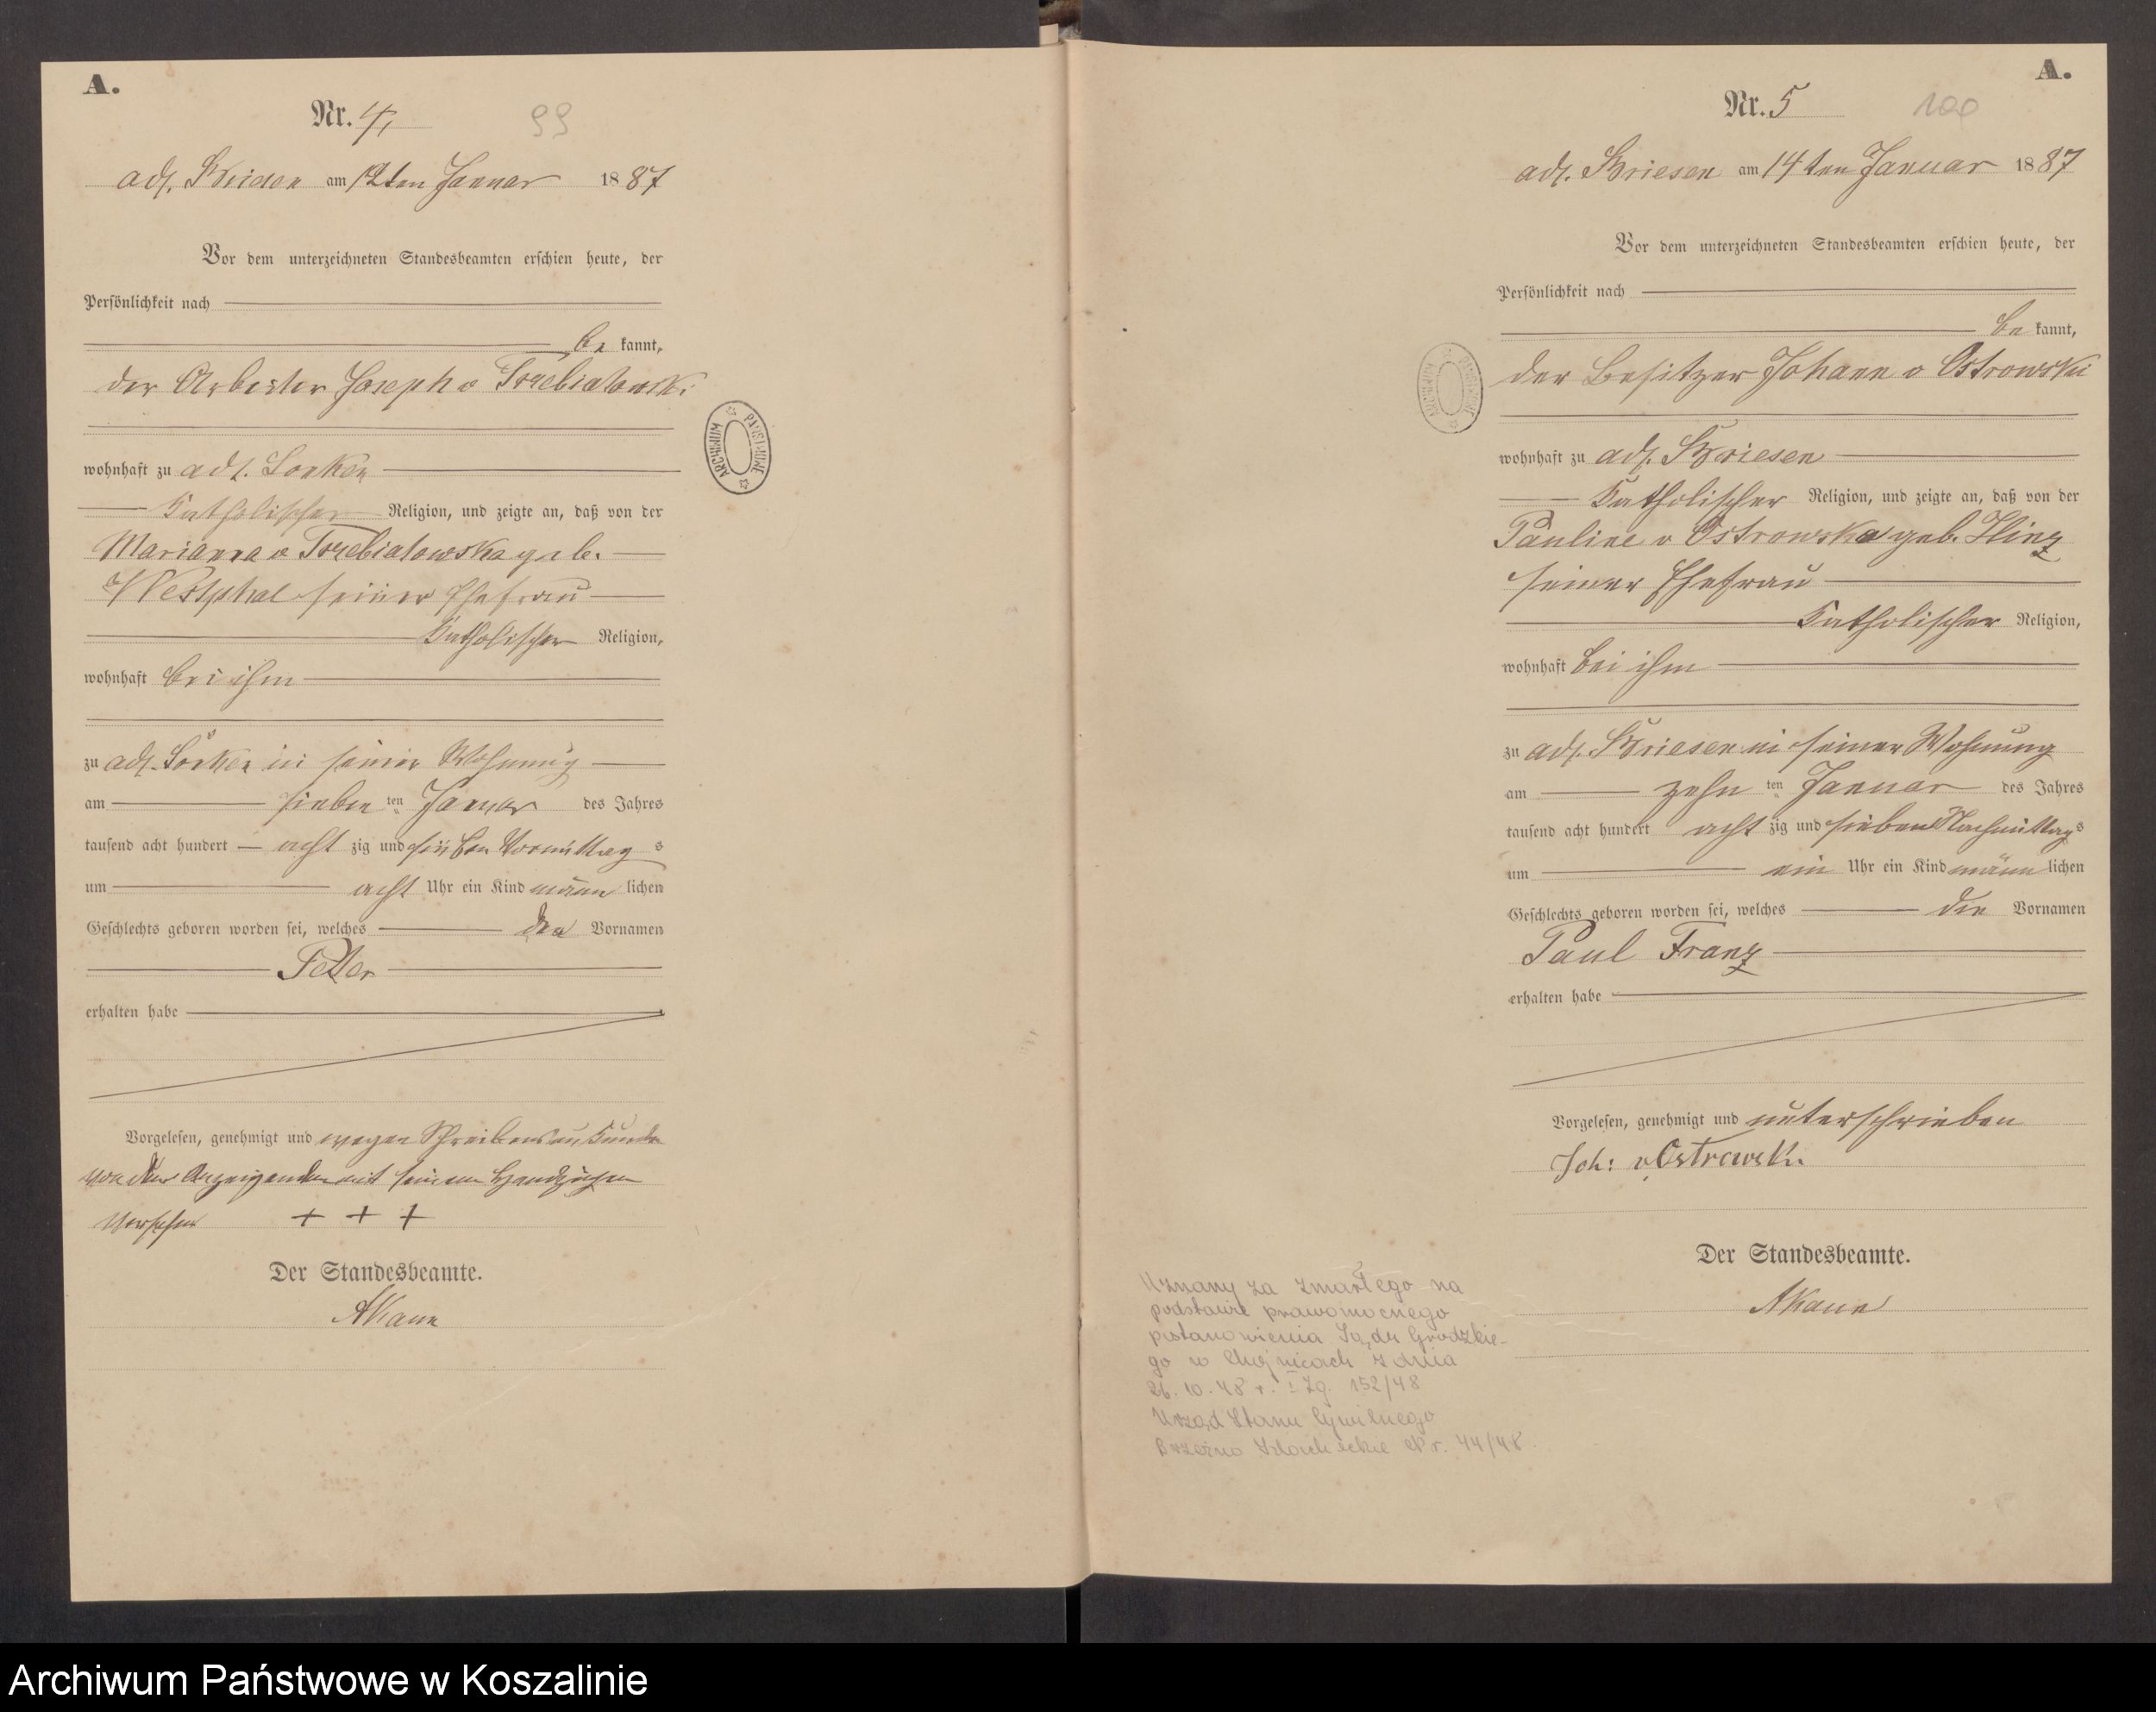 A.
Nr. 4,
99
adl. Briesen am 12ten Januar 1887
Vor dem unterzeichneten Standesbeamten erschien heute, der
Persönlichkeit nach
be kannt,
der Arbeiter Joseph v Trzebiatowski
wohnhaft zu adl. Lonken
Katholischer Religion, und zeigte an, daß von der
Marianna v Trzebiatowska geb.
Westphal seiner Ehefrau
Katholischer Religion,
wohnhaft bei ihm
zu adl. Lonken in seiner Wohnung
am sieben ten Januar des Jahres
tausend acht hundert acht zig und sieben Vormittag s
um acht Uhr ein Kind männ lichen
Geschlechts geboren worden sei, welches den Vornamen
Peter
erhalten habe
Vorgelesen, genehmigt und wegen Schreibensunkunde
von dem Anzeigenden mit seinem Handzeichen
versehen + + +
Der Standesbeamte.
AKann
ARCHIWUM PAŃSTWOWE
A.
Nr. 5
100
adl. Briesen am 14ten Januar 1887
Vor dem unterzeichneten Standesbeamten erschien heute, der
Persönlichkeit nach
be kannt,
der Besitzer Johann v Ostrowski
wohnhaft zu adl. Briesen
Katholischer Religion, und zeigte an, daß von der
Pauline v Ostrowska geb. Hinz
seiner Ehefrau
Katholischer Religion,
wohnhaft bei ihm
zu adl. Briesen in seiner Wohnung
am zehn ten Januar des Jahres
tausend acht hundert acht zig und sieben Nachmittag s
um ein Uhr ein Kind männ lichen
Geschlechts geboren worden sei, welches die Vornamen
Paul Franz
erhalten habe
Vorgelesen, genehmigt und unterschrieben
Joh: v Ostrowski.
Der Standesbeamte.
AKann
ARCHIWUM PAŃSTWOWE
Uznany za zmarłego na
podstawie prawomocnego
postanowienia Sądu Grodzkie-
go w Chojnicach z dnia
26.10.48 r. I Zg. 152/48
Urząd Stanu Cywilnego
Brzeźno Szlacheckie Nr. 44/48
Archiwum Państwowe w Koszalinie